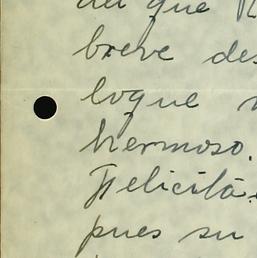 del que
breve des
logue
hermoso.
Felicita
pues su